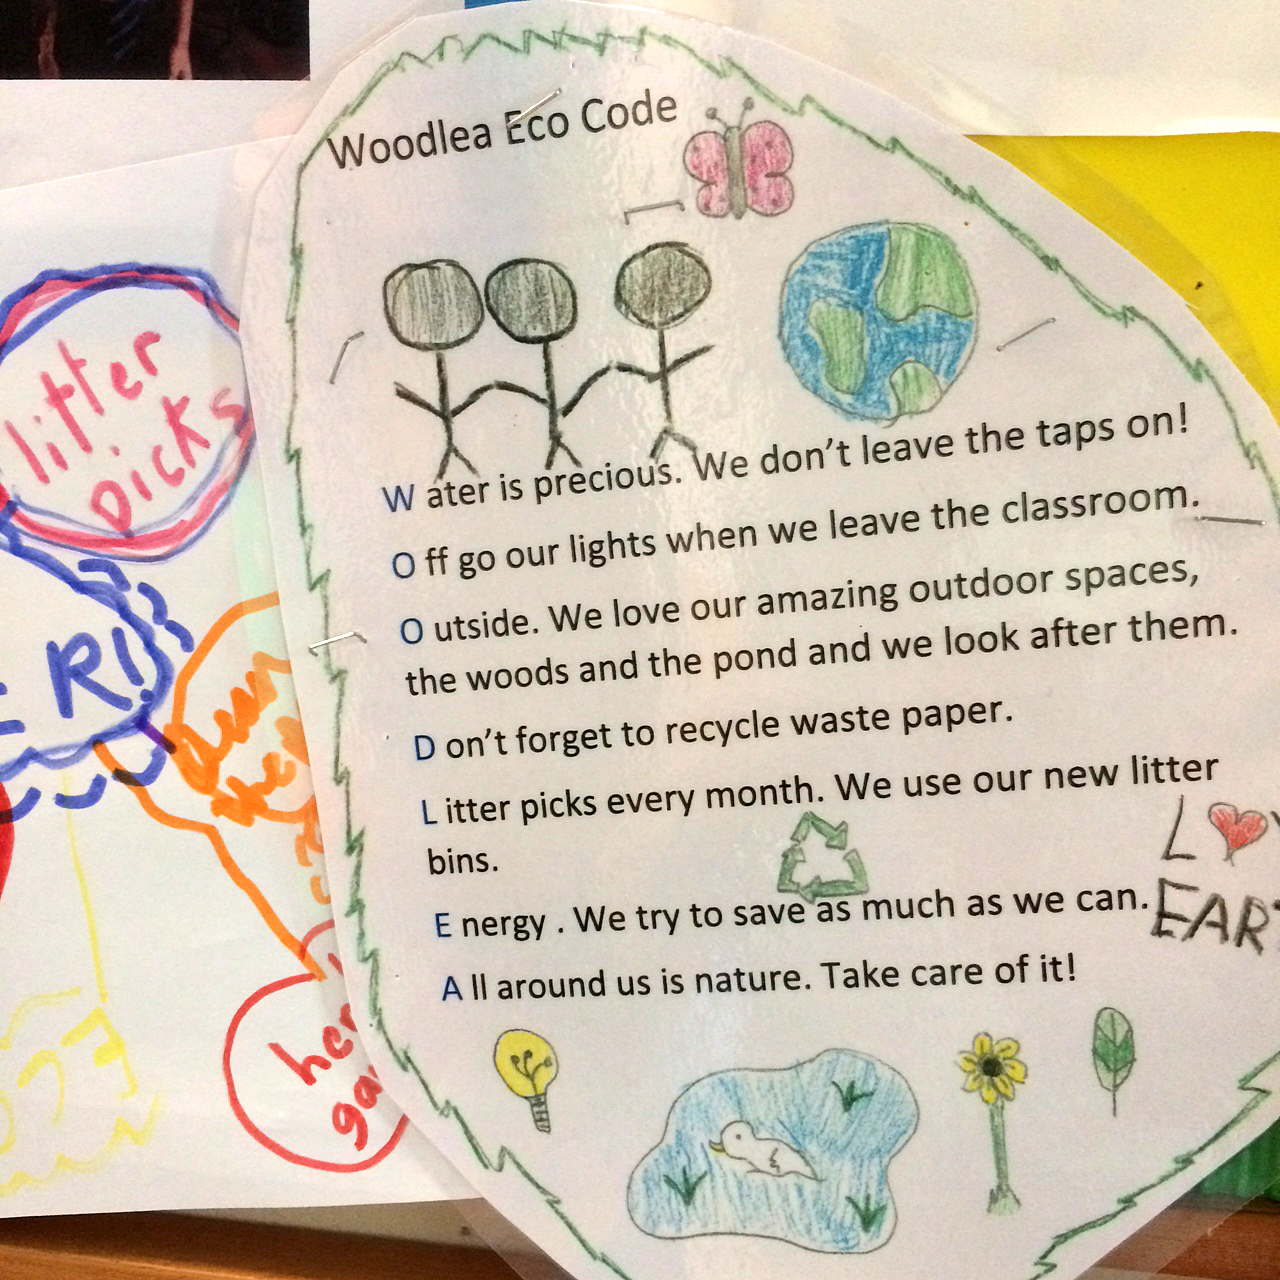 Woodlea Eco Code
W ater is precious. We don't leave the taps on!
O ff go our lights when we leave the classroom.
O utside. We love our amazing outdoor spaces,
the woods and the pond and we look after them.
D on't forget to recycle waste paper.
L itter picks every month. We use our new litter
bins.
E nergy . We try to save as much as we can.
A ll around us is nature. Take care of it!
L
EAR
litter
Dicks
RI